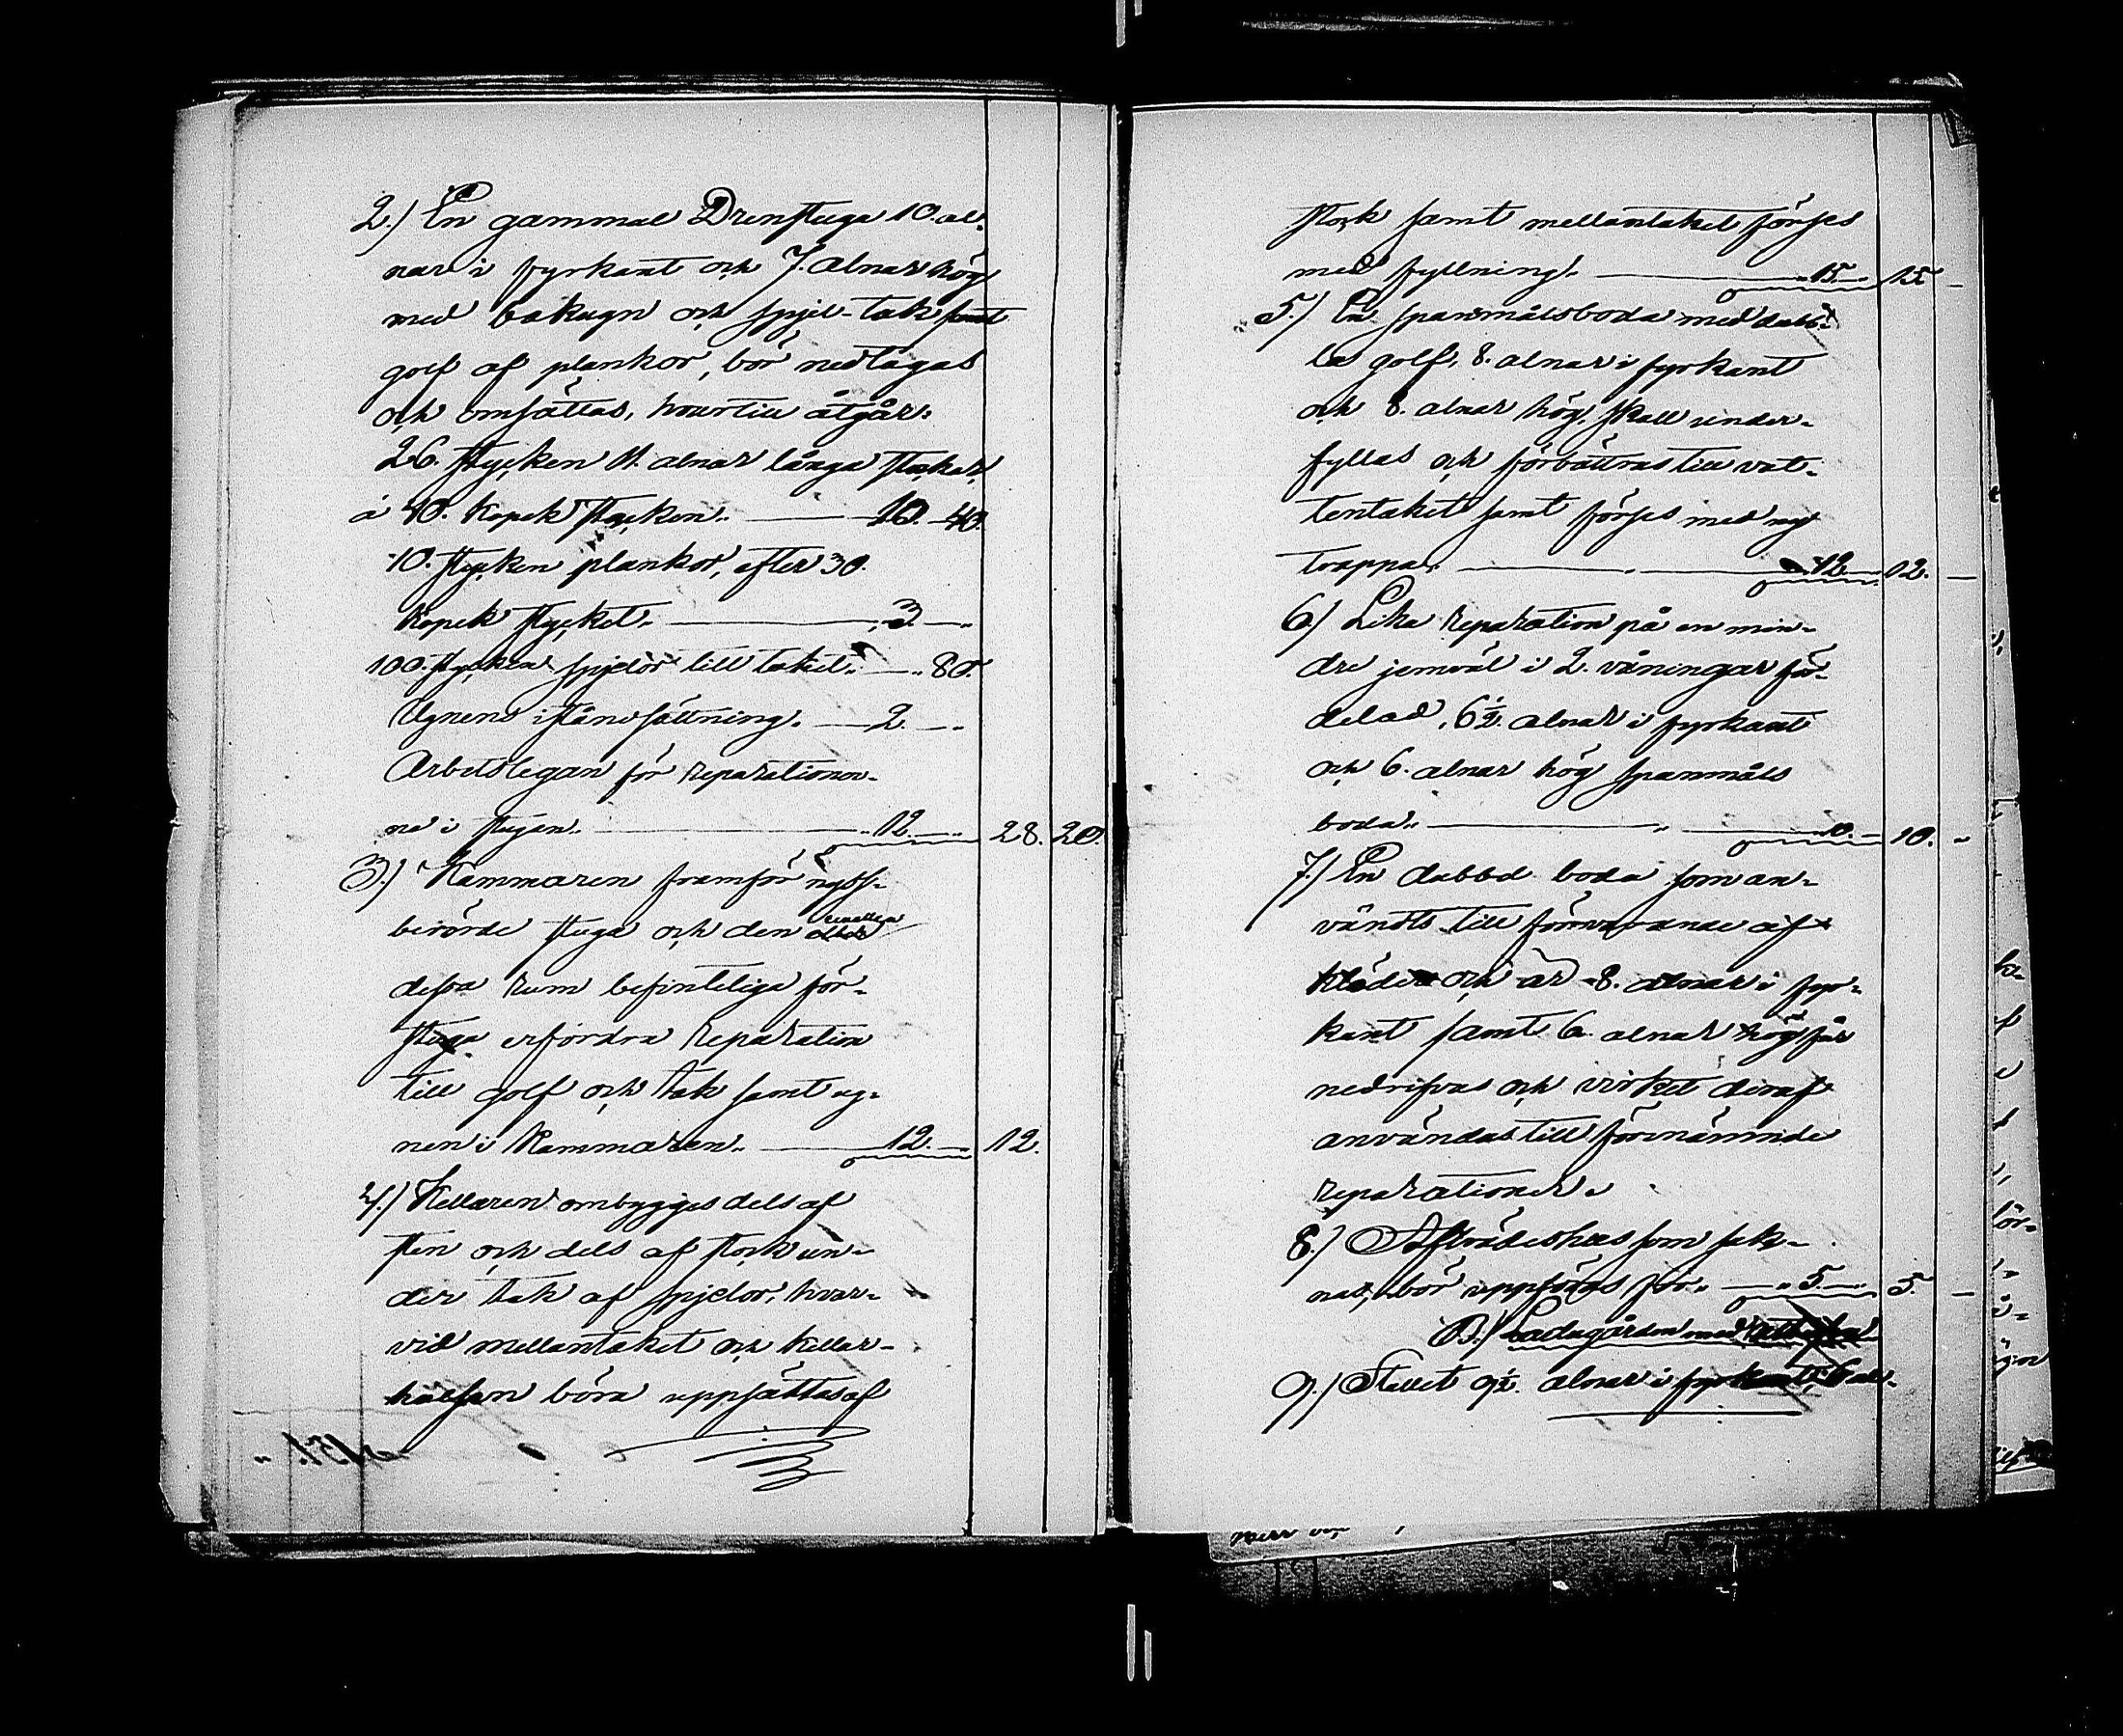 2.) En gammal Drenstuga 10. al-
nar i fyrkant och 7. alnar hög
med bakugn och spjel-tak samt
golf af plankor, bör nedtagas
och omsättas, hvartill åtgår:
26. stycken 11. alnar långa stockar,
á 40. kopek stycken. 10. 40.
10. stycken plankor, efter 30.
kopek stycket. 3. —
100. stycken spjelor till taket. — 80.
Ugnens iståndsättning. 2. —
Arbetslegan för reparationer-
na i stugan. 12. — 28. 20.
3.) Kammaren framför nyss-
berörde stuga och den emellan
dessa rum befinteliga för-
stuga erfordra reparation
till golf och tak samt ug-
nen i Kammaren. 12. — 12.
4.) Kellaren ombygges dels af
sten och dels af stock un-
der tak af spjelor, hvar-
vid mellantaket och kellar-
halsen böra uppsättas af
stock samt mellantaket förses
med fyllning. 15. — 15 —
5.) En spanmålsboda med dubb-
la golf, 8. alnar i fyrkant
och 8. alnar hög, skall under-
fyllas och förbättras till vat-
tentaket samt förses med ny
trappa. 12. — 12. —
6.) Lika reparation på en min-
dre jemväl i 2. våningar för-
delad, 6½. alnar i fyrkant
och 6. alnar hög spanmåls
boda. 10. — 10. -
7.) En dubbel boda som an-
vändts till förvarande af
kläder och är 8. alnar i fyr-
kant samt 6. alnar hög får
nedrifvas och virket deraf
användas till förenämnde
reparationer.
8.) Afträdeshus som sak-
nas, bör uppföras för. 5. — 5. —
B.) Ladugården med
9.) Stallet 9½. alnar i fyrkant, 6 al-